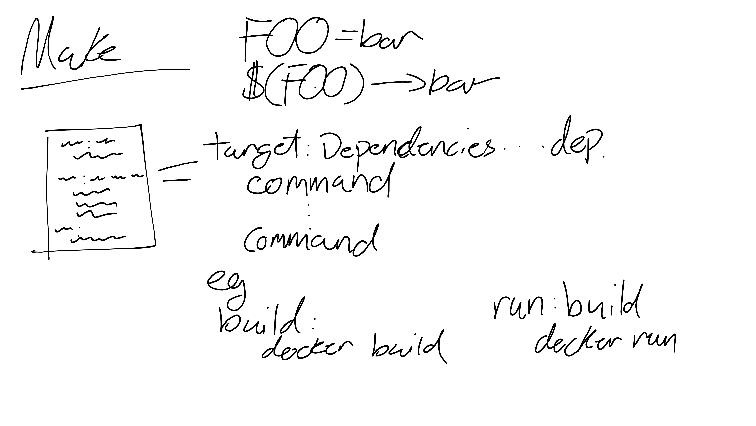 Make
FOO=bar
$(FOO)→bar
target: Dependencies... dep.
command
⋮
command
eg
build:
docker build
run: build
docker run